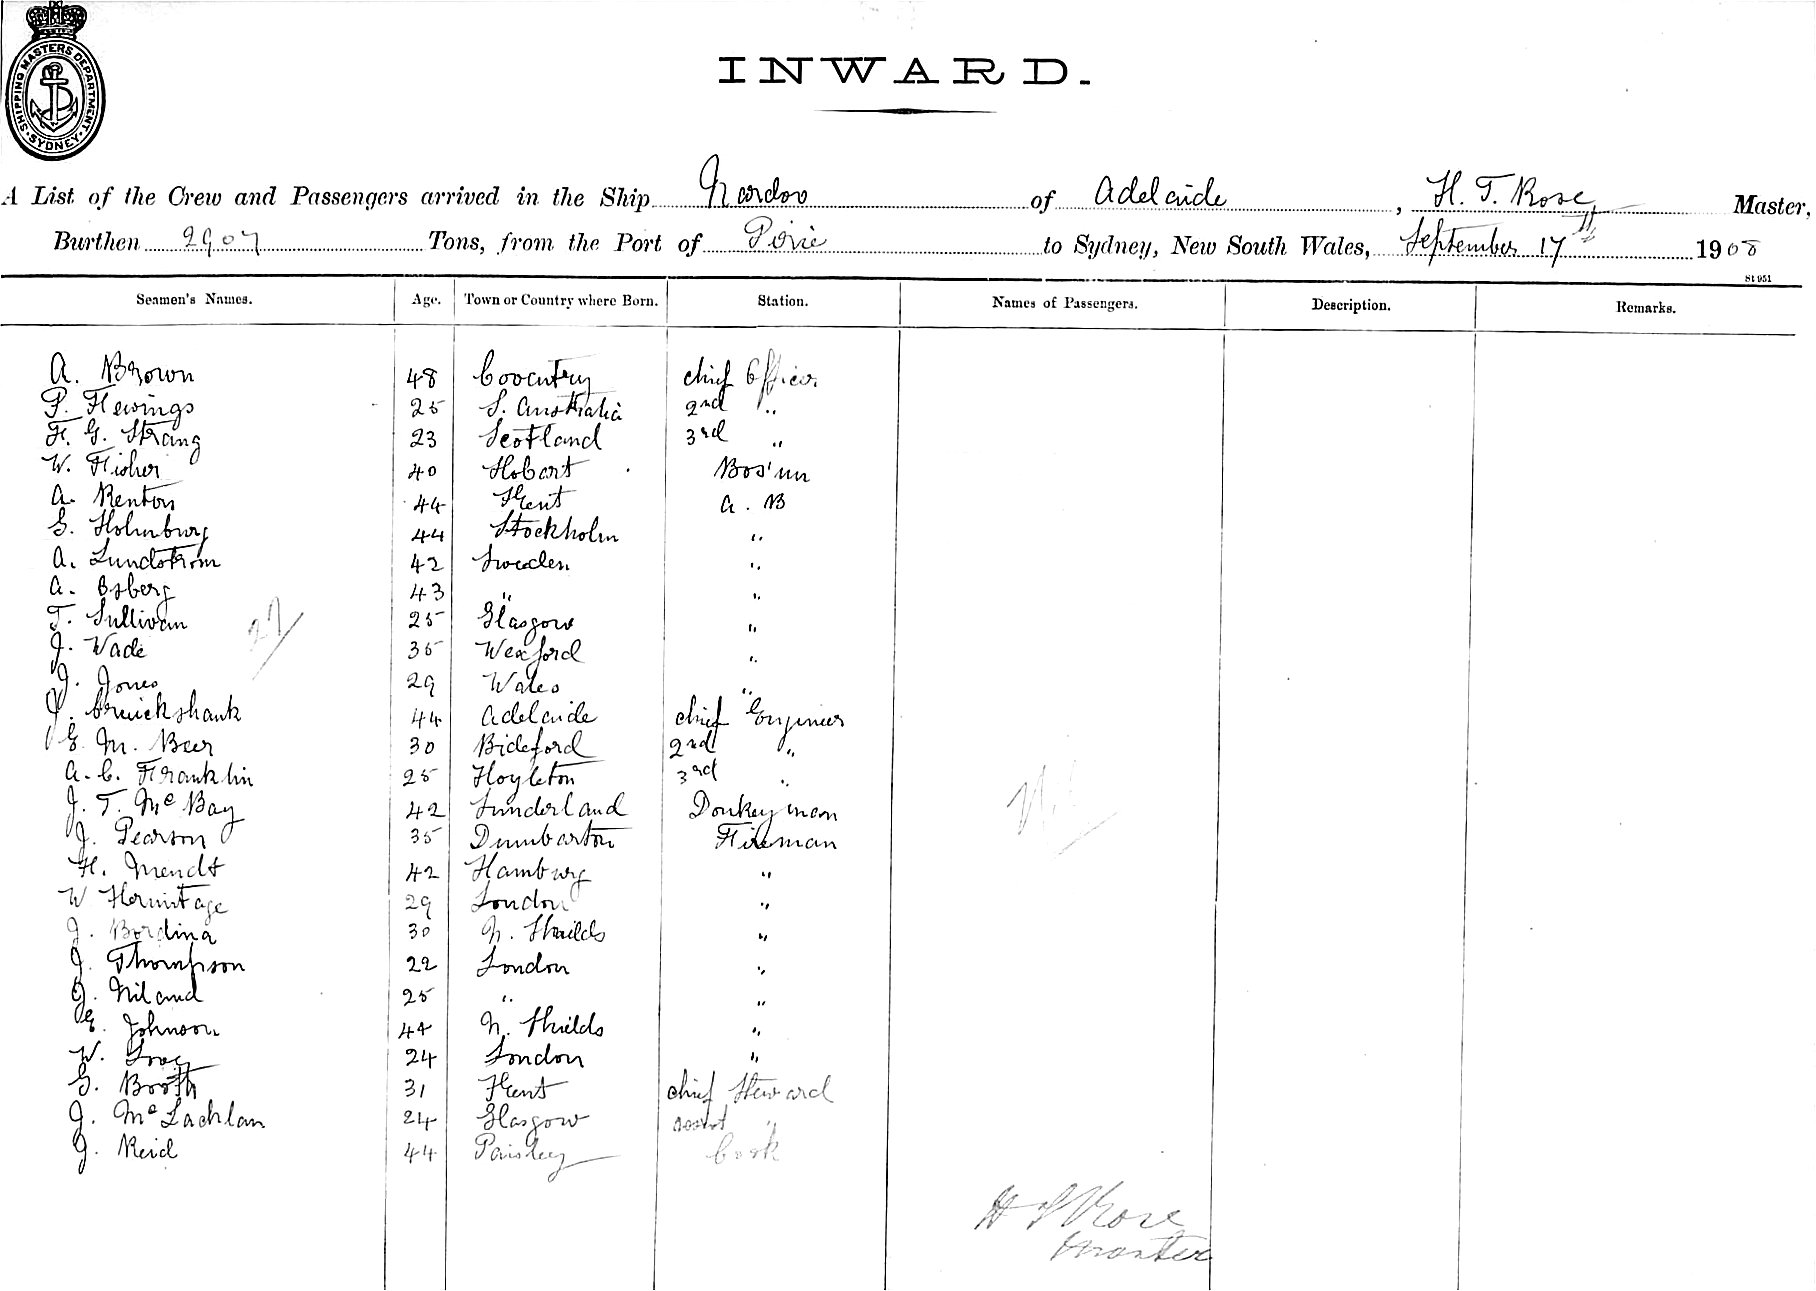 SHIPPING MASTERS DEPARTMENT
SYDNEY
INWARD.
A List of the Crew and Passengers arrived in the Ship Nardoo of Adelaide, H. T. Rose Master,
Burthen 2907 Tons, from the Port of Pirie to Sydney, New South Wales, September 17th 1908
St 951
Seamen's Names. Age. Town or Country where Born. Station. Names of Passengers. Description. Remarks.
A. Brown 48 Coventry Chief Officer
P. Flewings 25 S. Australia 2nd "
F. G. Strang 23 Scotland 3rd "
W. Fisher 40 Hobart Bos'un
A. Renton 44 Kent A. B
G. Holmburg 44 Stockholm "
A. Lundstrom 42 Sweden "
A. Osberg 43 " "
T. Sullivan 25 Glasgow "
27
J. Wade 35 Wexford "
J. Jones 29 Wales "
J. Cruickshank 44 Adelaide Chief Engineer
E. M. Beer 30 Bideford 2nd "
A. C. Franklin 25 Hoyleton 3rd "
J. T. McBay 42 Sunderland Donkeyman
Nil
J. Pearson 35 Dumbarton Fireman
H. Mendt 42 Hamburg "
W Hermitage 29 London "
J. Bordina 30 N. Shields "
J. Thompson 22 London "
J. Niland 25 " "
E. Johnson 44 N. Shields "
W. 24 London "
G. Booth 31 Kent Chief Steward
J. McLachlan 24 Glasgow asst "
J. Reid 44 Paisley Cook
H T Rose
Master